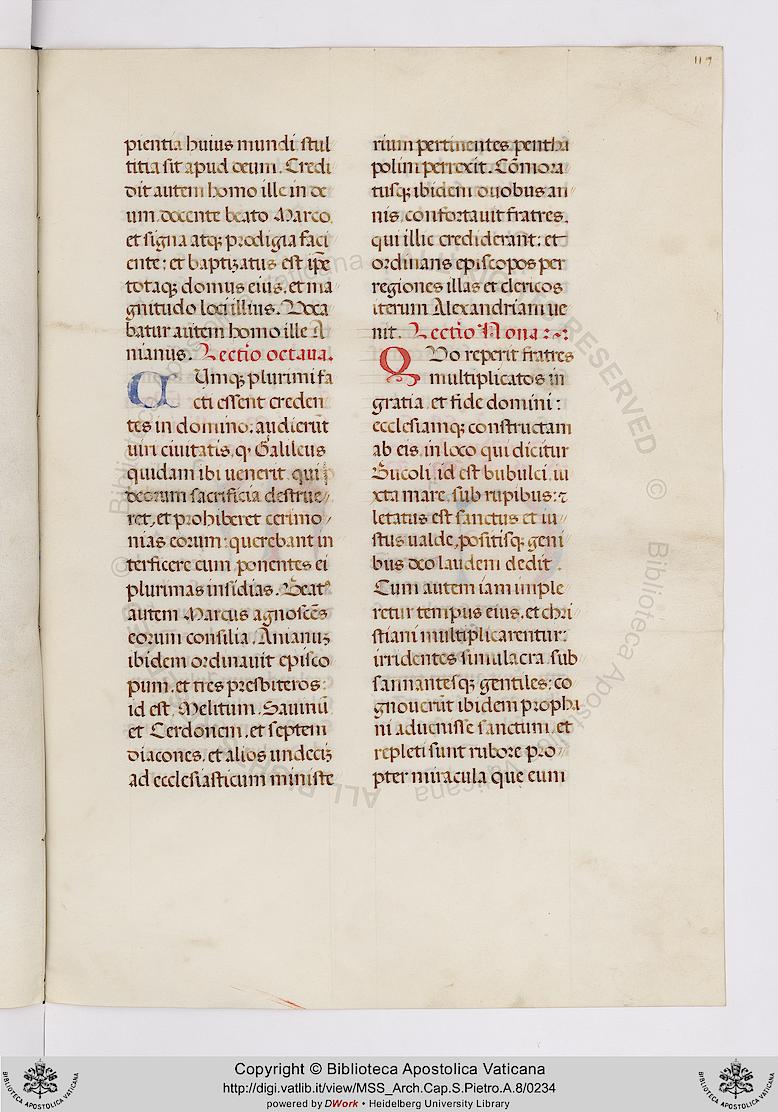 119
pientia huius mundi stul
titia sit apud deum. Credi
dit autem homo ille in de
um, docente beato Marco,
et signa atq; prodigia faci
ente: et baptizatus est ip̄e
totaq; domus eius, et ma
gnitudo loci illius. Voca
batur autem homo ille A
nianus. Lectio octaua.
CUmq; plurimi fa
cti essent creden
tes in domino: audierūt
uiri ciuitatis, q Galileus
quidam ibi uenerit, qui
deorum sacrificia destrue
ret, et prohiberet cerimo
nias eorum: querebant in
terficere eum, ponentes ei
plurimas insidias. Beatꝰ
autem Marcus agnoscēs
eorum consilia, Anianuȝ
ibidem ordinauit episco
pum, et tres presbiteros:
id est, Melitum, Sauinū
et Cerdonem, et septem
diacones, et alios undeciȝ
ad ecclesiasticum ministe
rium pertinentes, pentha
polim perrexit. Cōmora
tusq; ibidem duobus an
nis, confortauit fratres,
qui illic crediderant: et
ordinans episcopos per
regiones illas et clericos
iterum Alexandriam ue
nit. Lectio Nona:
QVo reperit fratres
multiplicatos in
gratia, et fide domini:
ecclesiamq; constructam
ab eis, in loco qui dicitur
Bucoli, id est bubulci, iu
xta mare, sub rupibus: ⁊
letatus est sanctus et iu
stus ualde, positisq; geni
bus deo laudem dedit.
Cum autem iam imple
retur tempus eius, et chri
stiani multiplicarentur:
irridentes simulacra, sub
sannantesq; gentiles: co
gnouerūt ibidem propha
ni aduenisse sanctum, et
repleti sunt rubore pro
pter miracula que eum
Copyright © Biblioteca Apostolica Vaticana
http://digi.vatlib.it/view/MSS_Arch.Cap.S.Pietro.A.8/0234
powered by DWork • Heidelberg University Library